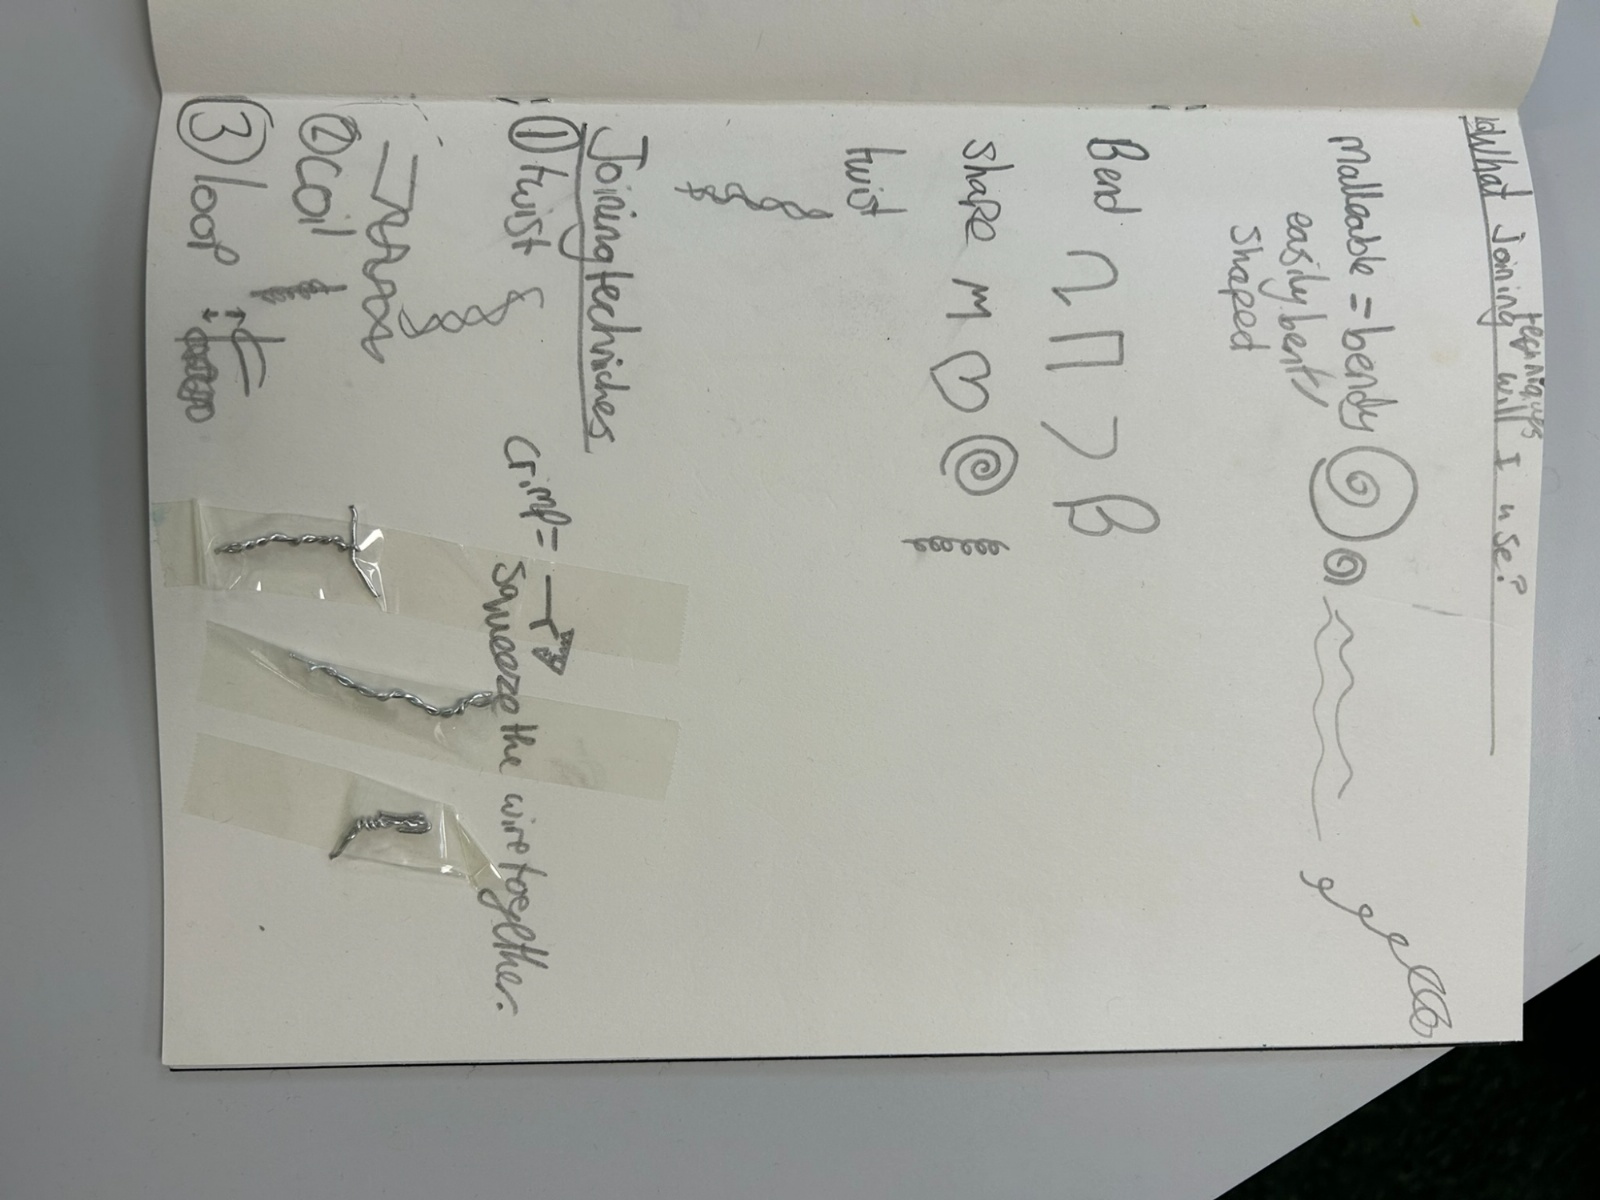 What Joining techniques will I use?
Malleable = bendy
easily bent,
shaped
Bend
shape
twist
Joining techniches
① twist
crimp =
squeeze the wire together.
② coil
③ loop